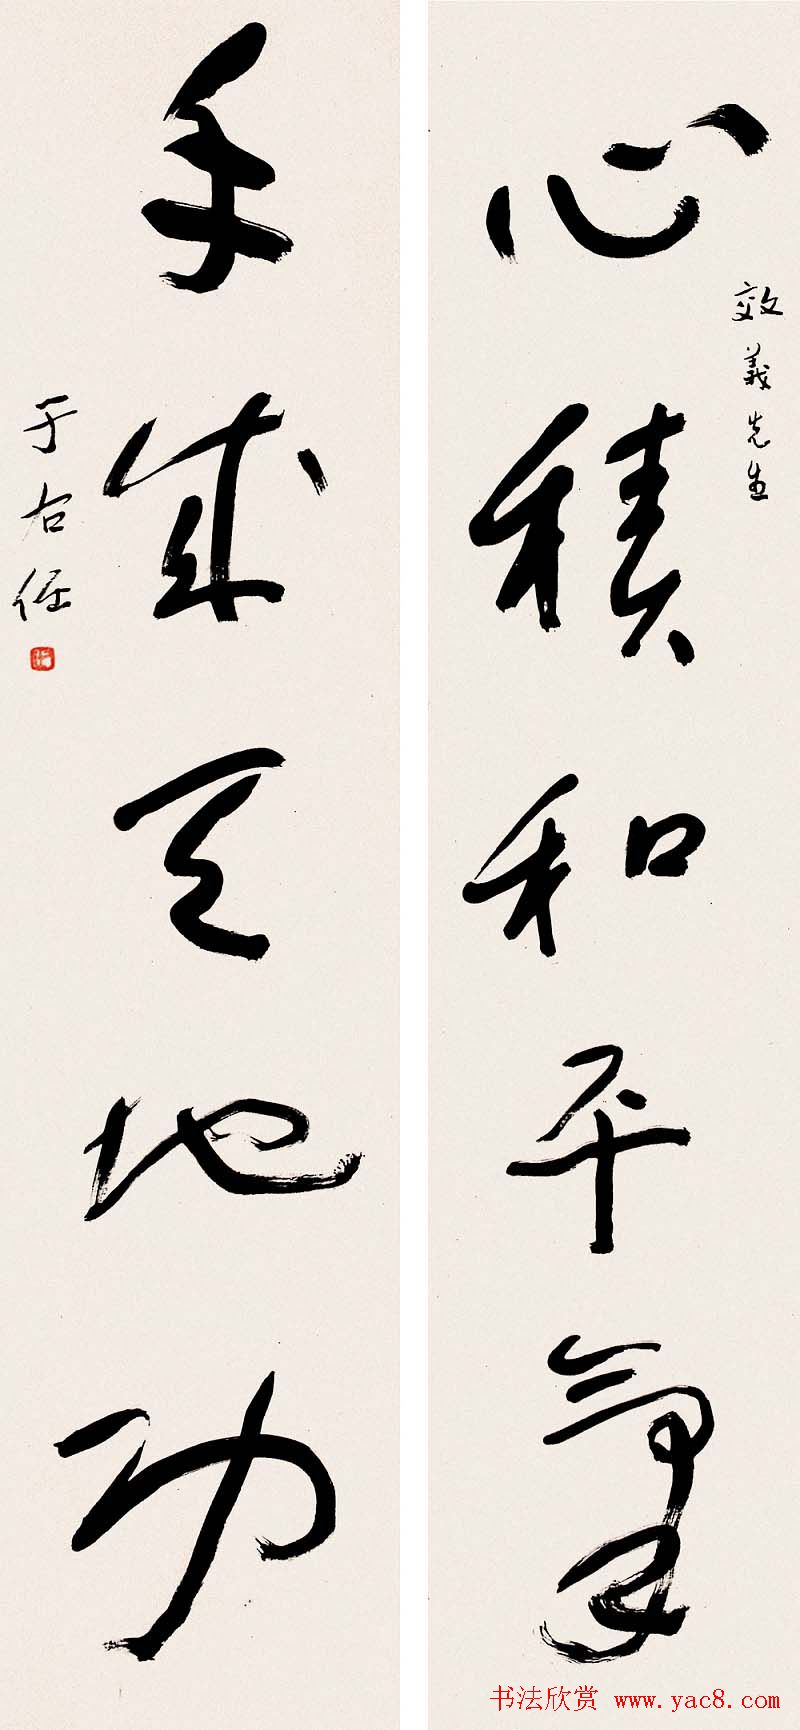 效義先生
心積和平氣
手成天地功
于右任
书法欣赏 www.yac8.com